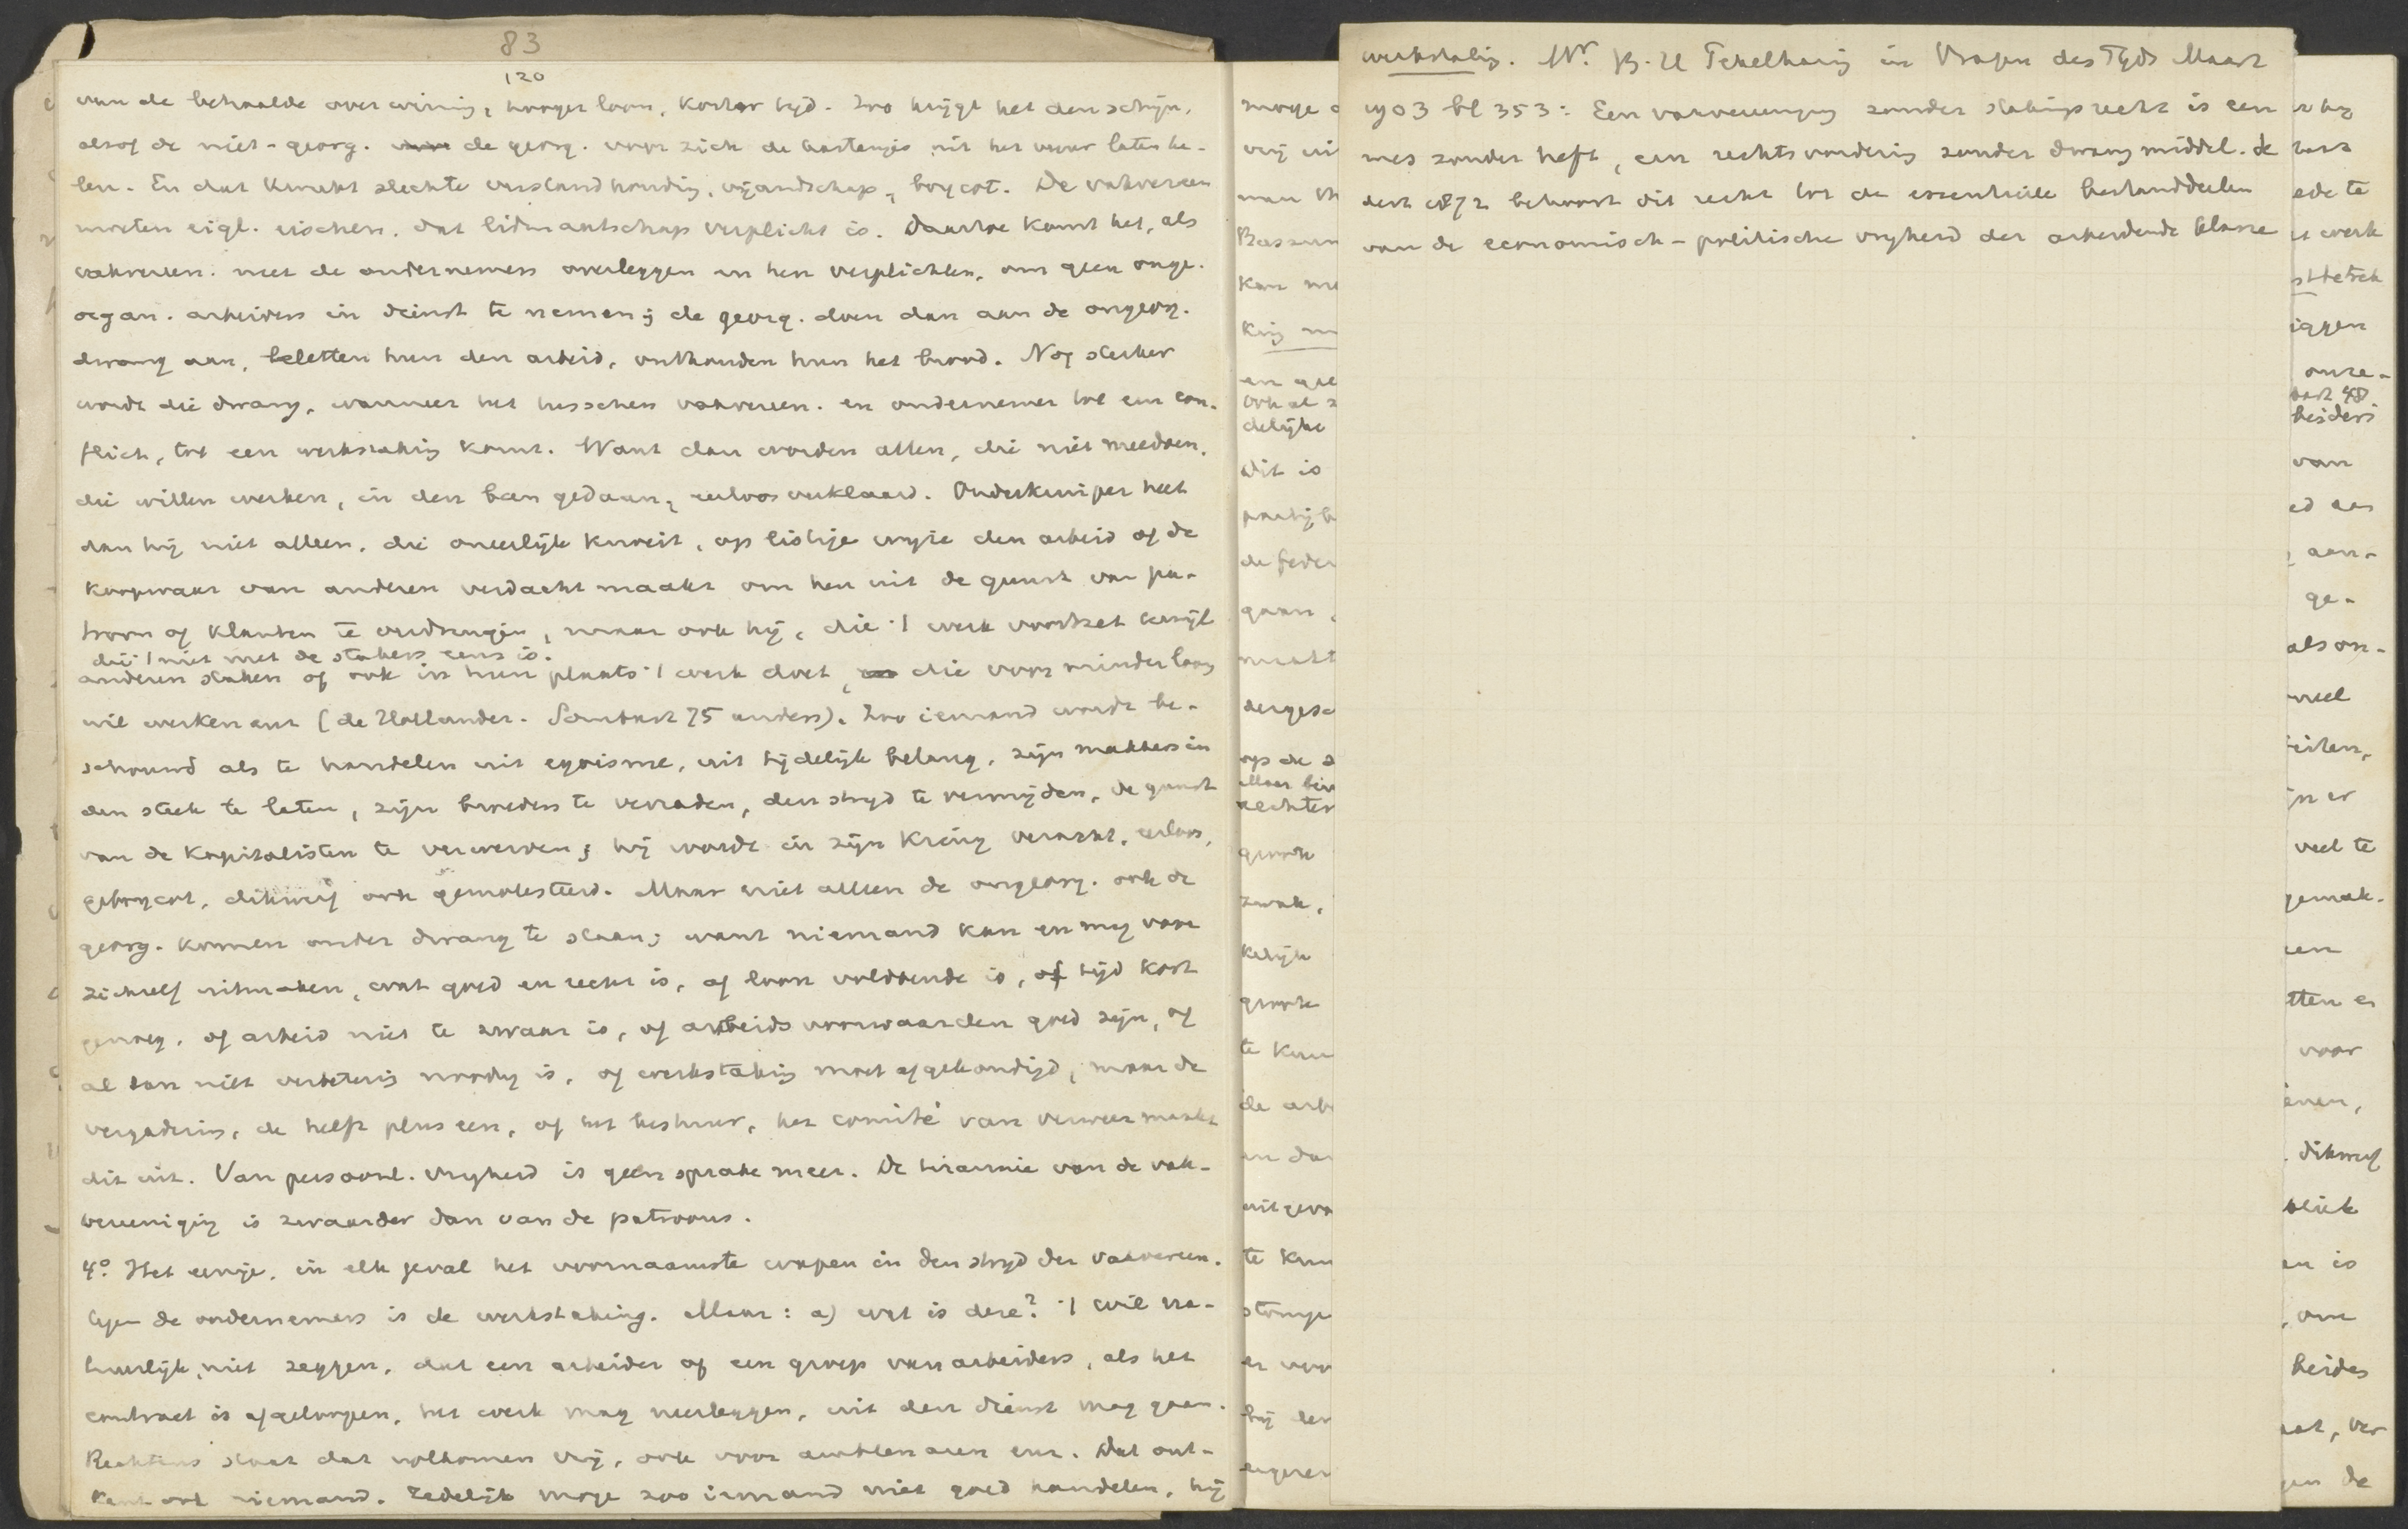 83
120
van de behaalde overwinning, hooger loon, korter tijd. Zoo krijgt het den schijn,
alsof de niet-georg. de georg. voor zich de kastanjes uit het vuur laten ha-
len. En dat kweekt slechte verstandhouding, vijandschap, boycot. De vakvereen
moeten eigl. eischen, dat lidmaatschap verplicht is. Daartoe komt het, als
vakvereen. met de ondernemers overleggen en hen verplichten, om geen onge-
organ. arbeiders in dienst te nemen; de georg. doen dan aan de ongeorg.
dwang aan, beletten hun den arbeid, onthouden hun het brood. Nog sterker
wordt die dwang, wanneer het tusschen vakvereen. en ondernemer tot een con-
flict, tot een werkstaking komt. Want dan worden allen, die niet meedoen,
die willen werken, in den ban gedaan, eerloos verklaard. Onderkruiper heet
dan hij niet alleen, die oneerlijk knoeit, op listige wijze den arbeid of de
koopwaar van anderen verdacht maakt om hen uit de gunst van pa-
troon of klanten te verdringen, maar ook hij, die 't werk voortzet terwijl
die 't niet met de stakers eens is.
anderen staken of ook in hun plaats 't werk doet, die voor minder loon
wil werken enz (de Hollander. Sombart 75 anders). Zoo iemand wordt be-
schouwd als te handelen uit egoisme, uit tijdelijk belang, zijn makkers in
den steek te laten, zijn broeders te verraden, den strijd te vermijden, de gunst
van de kapitalisten te verwerven; hij wordt in zijn kring veracht, eerloos,
geboycot, dikwijls ook gemolesteerd. Maar niet alleen de ongeorg. ook de
georg. komen onder dwang te staan; want niemand kan en mag voor
zichzelf uitmaken, wat goed en recht is, of loon voldoende is, of tijd kort
genoeg, of arbeid niet te zwaar is, of arbeidsvoorwaarden goed zijn, of
al dan niet verbetering noodig is, of werkstaking moet afgekondigd, maar de
vergadering, de helft plus een, of het bestuur, het comité van verweer maakt
dit uit. Van persoonl. vrijheid is geen sprake meer. De tirannie van de vak-
vereeniging is zwaarder dan van de patroons.
4°. Het eenige, in elk geval het voornaamste wapen in den strijd der vakvereen.
tegen de ondernemers is de werkstaking. Maar: a) wat is deze? 't wil na-
tuurlijk niet zeggen, dat een arbeider of een groep van arbeiders, als het
contract is afgeloopen, het werk mag neerleggen, uit den dienst mag gaan.
Rechtens staat dat volkomen vrij, ook voor ambtenaren enz. Dat ont-
kent ook niemand. Zedelijk moge zoo iemand niet goed handelen, hij
werkstaking. Mr. B. H Pekelharing in Vragen des Tijds Maart
1903 bl 353: Een vereeniging zonder stakingsrecht is een
mes zonder heft, een rechtsvordering zonder dwangmiddel. de
dert 1872 behoort dit recht tot de essentieele bestanddeelen
van de economisch-politische vrijheid der arbeidende klasse